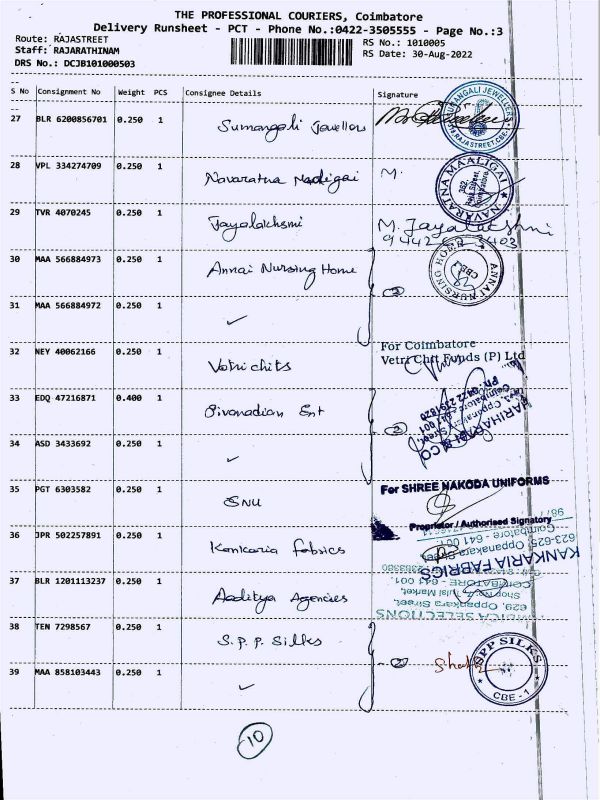 THE PROFESSIONAL COURIERS, Coimbatore
Delivery Runsheet - PCT - Phone No.:0422-3505555 - Page No.:3
Route: RAJASTREET
Staff: RAJARATHINAM
DRS No.: DCJB101000503
RS No.: 1010005
RS Date: 30-Aug-2022
S No Consignment No Weight PCS Consignee Details Signature
27 BLR 6200856701 0.250 1 Sumangali Jewellers
28 VPL 334274709 0.250 1 Navaratna Maaligai M.
NAVARATNA MAALIGAI
29 TVR 4070245 0.250 1 Jayalakhsmi M. Jayalakshmi
30 MAA 566884973 0.250 1 Annai Nursing Home
ANNAI NURSING HOME CBE
31 MAA 566884972 0.250 1 ✓
32 NEY 40062166 0.250 1 Vetri chits
For Coimbatore
Vetri Chit Funds (P) Ltd
33 EDQ 47216871 0.400 1
PH: 0422 2391820
34 ASD 3433692 0.250 1 ✓
35 PGT 6303582 0.250 1 SNU
For SHREE NAKODA UNIFORMS
Proprietor / Authorised Signatory
36 JPR 502257891 0.250 1 Kankaria fabrics
KANKARIA FABRICS
623-625, Oppanakara Street
Coimbatore - 641 001.
37 BLR 1201113237 0.250 1 Aaditya Agencies
629, Oppankara Street,
COIMBATORE - 641 001.
38 TEN 7298567 0.250 1 S.P.P. Silks
SPP SILKS
CBE - 1
39 MAA 858103443 0.250 1 ✓
10